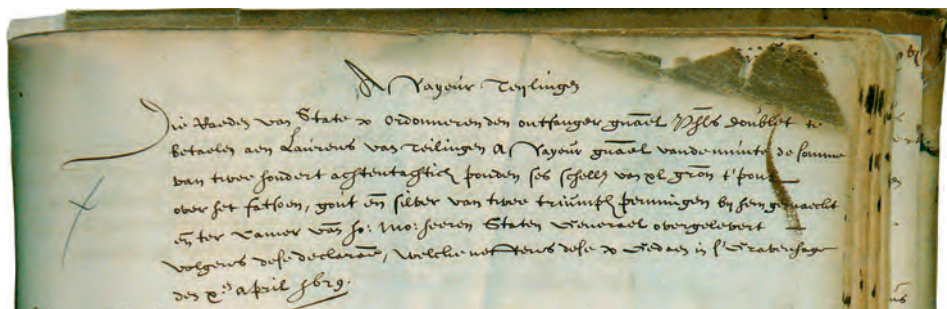 Assayeur Teylingen
Die Raeden van State &c Ordonneren den ontfanger gnāel Phls doublet te
Betaelen aen Laurens van Teilingen Assayeur gnāel vande munte de somme
van twee hondert achtentachtich ponden ses schell van xl gron t'pont
over het fatsoen, gout en silver van twee triumph penningen by hem gemaeckt
en ter Camer van ho: mo: heeren Staten Generael overgelevert
volgens dese declaraē, welcke mettens dese &c Gedaen in s'Gravenhage
den x en April 1629.